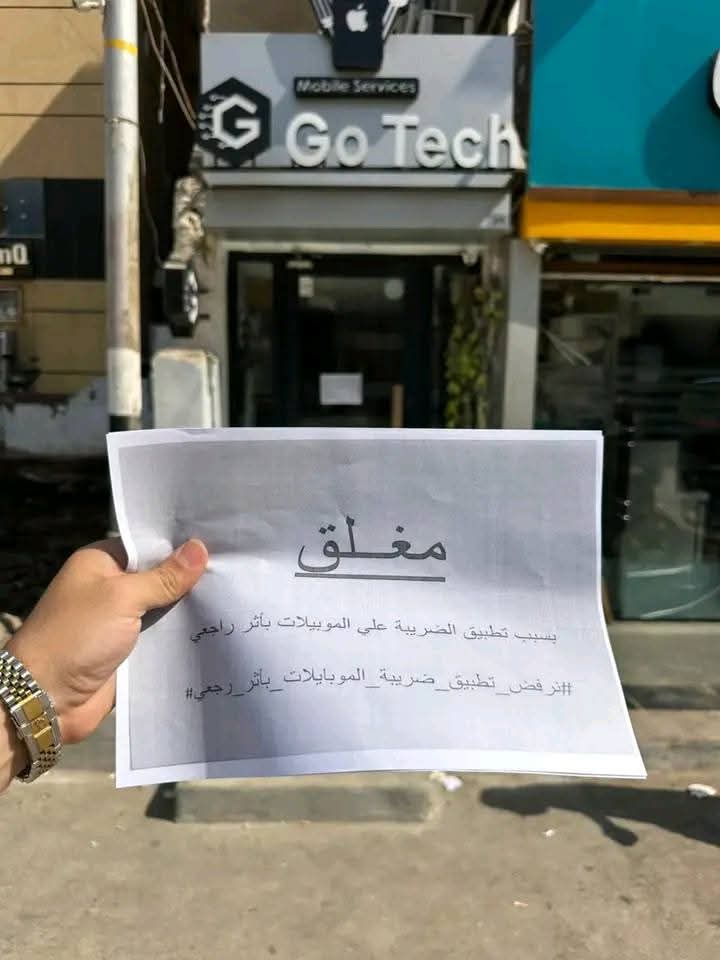 Mobile Services
G Go Tech
مغلق
بسبب تطبيق الضريبة علي الموبيلات بأثر راجعي
#نرفض_تطبيق_ضريبة_الموبايلات_بأثر_رجعي#